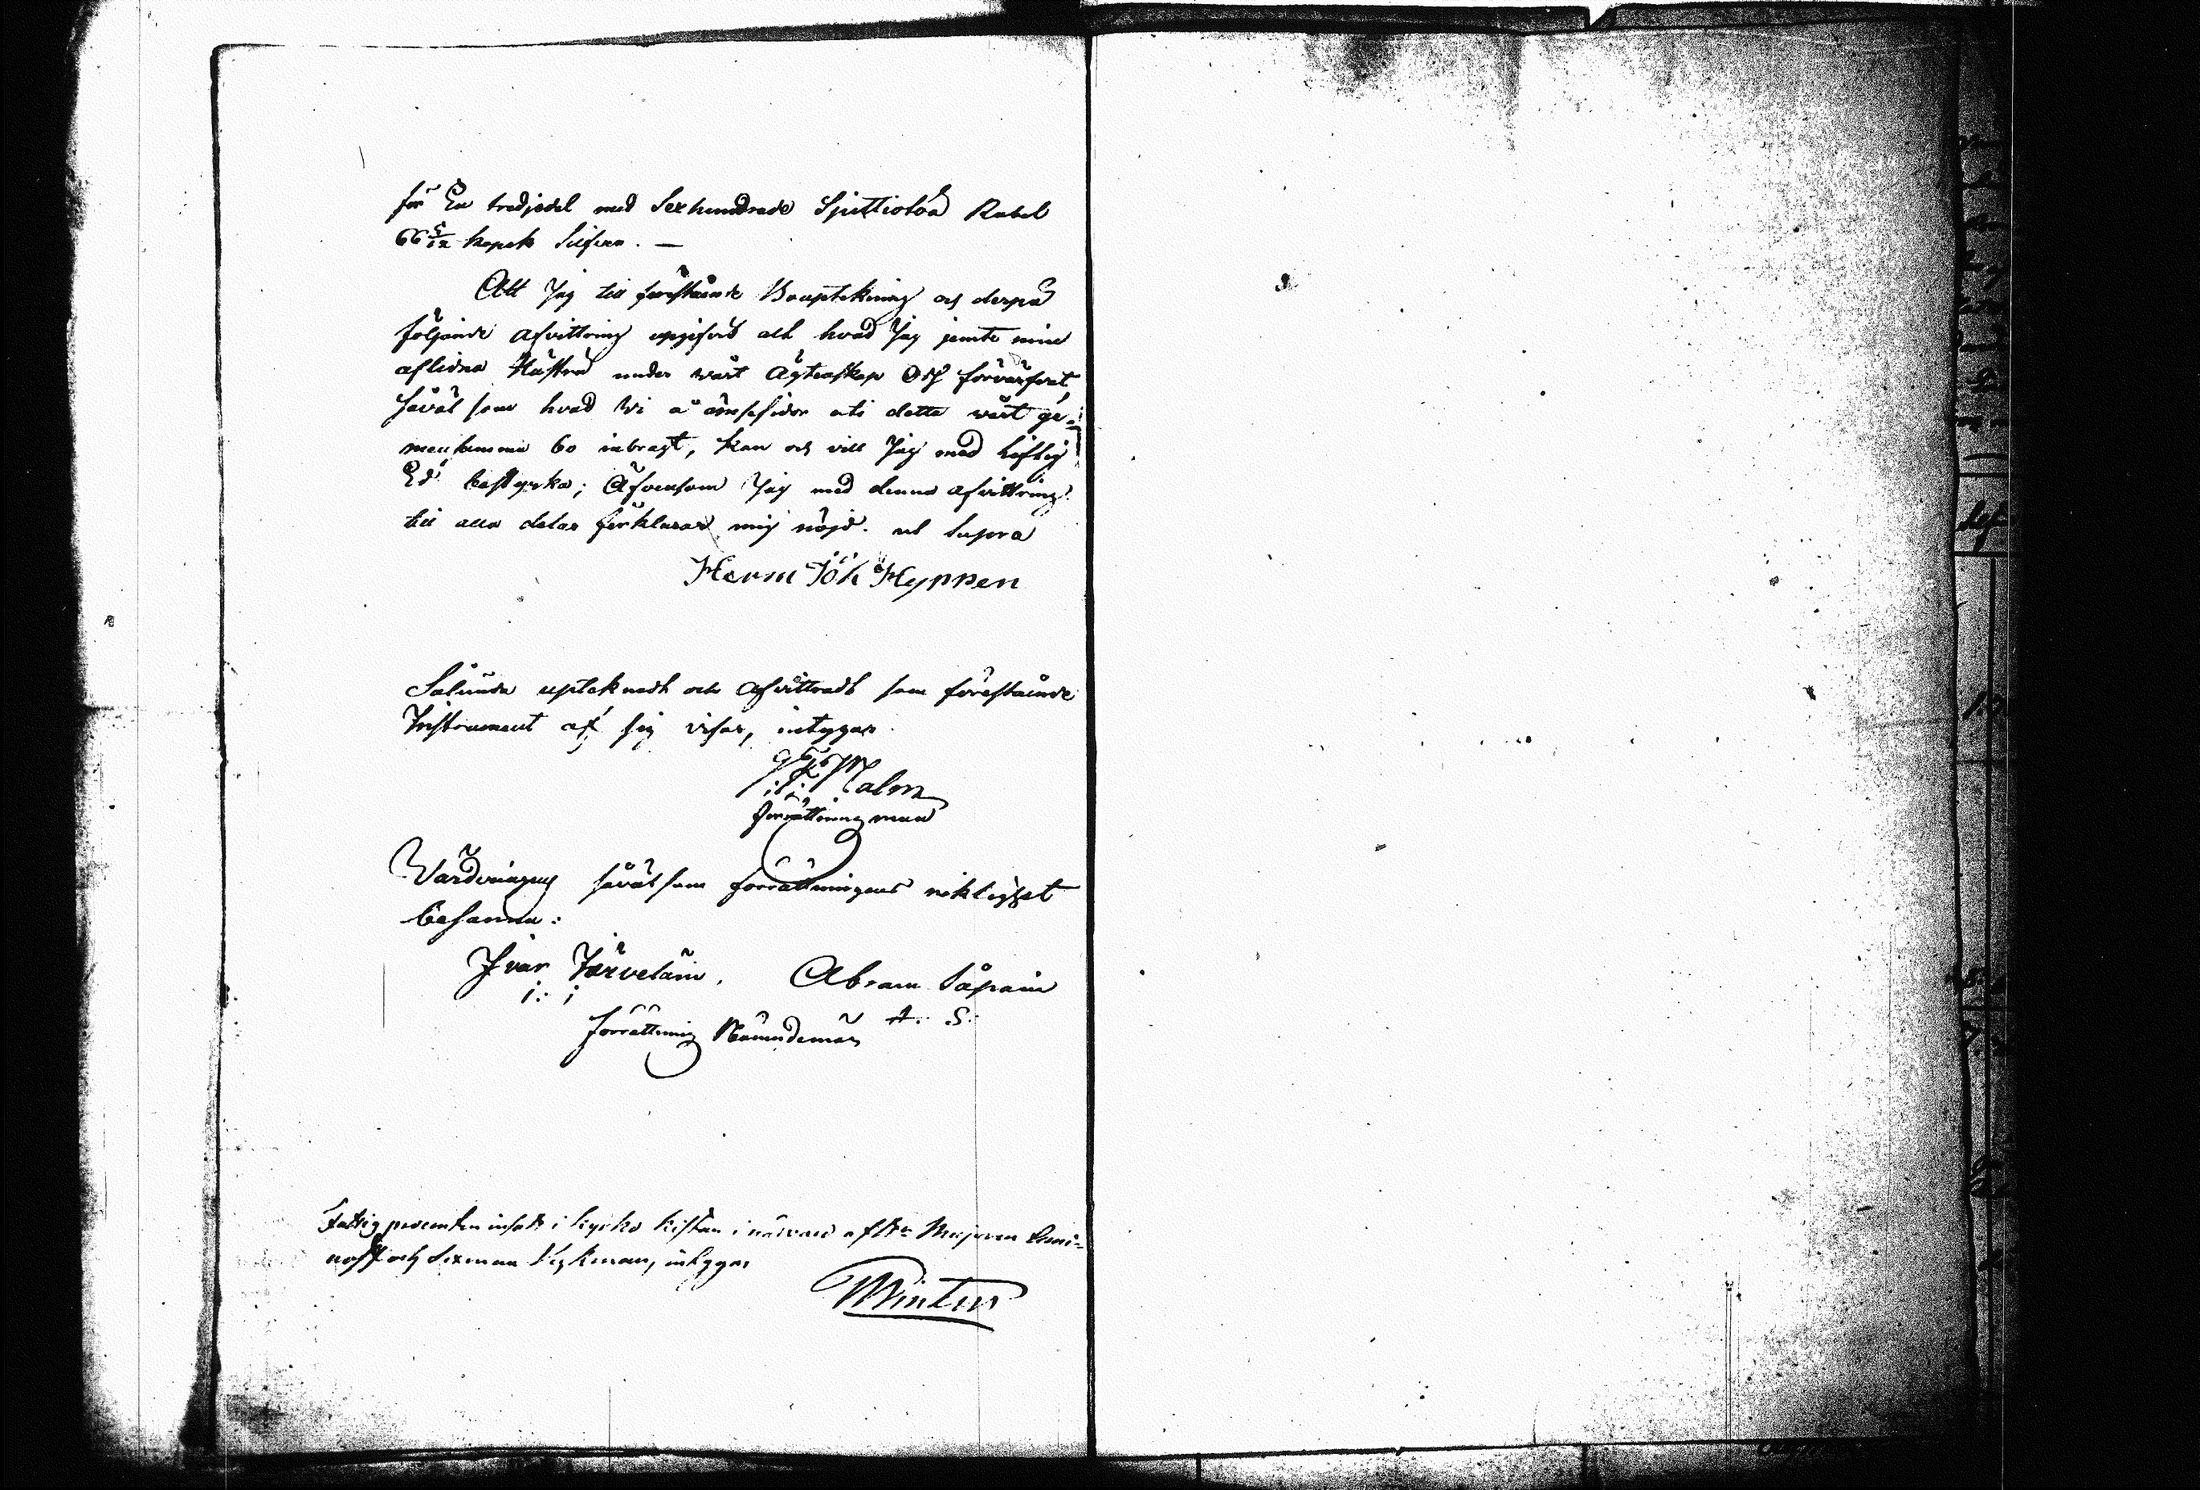 för En tredjedel med Sexhundrade Sjuttiotvå Rubel
66 5/12 kopek Silfver. —
Att Jag till förestående Bouptekning och derpå
följande afvittring uppgifvit alt hvad Jag jemte min
aflidna Hustru under vårt Ägtenskap Oss förvärfvat,
såväl som hvad Wi å ömsesidor uti detta vårt ge-
mensamma bo inbragt, kan och vill Jag med liflig
Ed bestyrka; Äfvensom Jag med denna afvittring
till alla delar förklarar mig nöjd. ut supra
Herm Joh Hyppen
Sålunda uptecknadt och afvittradt som förestående
Instrument af sig visar, intygar
Malm
förrättningsman
Värderingens såväl som förrättningens riktighet
besanna:
Ivar Järveläin. Abram Såpain
i: i
A: S:
förrättning Nämndemän
Fattigprocenten insatt i kyrko kistan i närvaro af Hr Majoren
och Sexman intygar
Winter